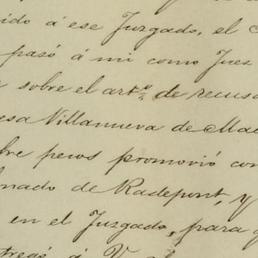 ido á ese Juzgado, el
pasó á mi como Juez
sobre el arto. de recusa
esa Villanueva de Mac
bre pesos promovió con
nado de Radepont, y
en el Juzgado, para q
tregó á V.